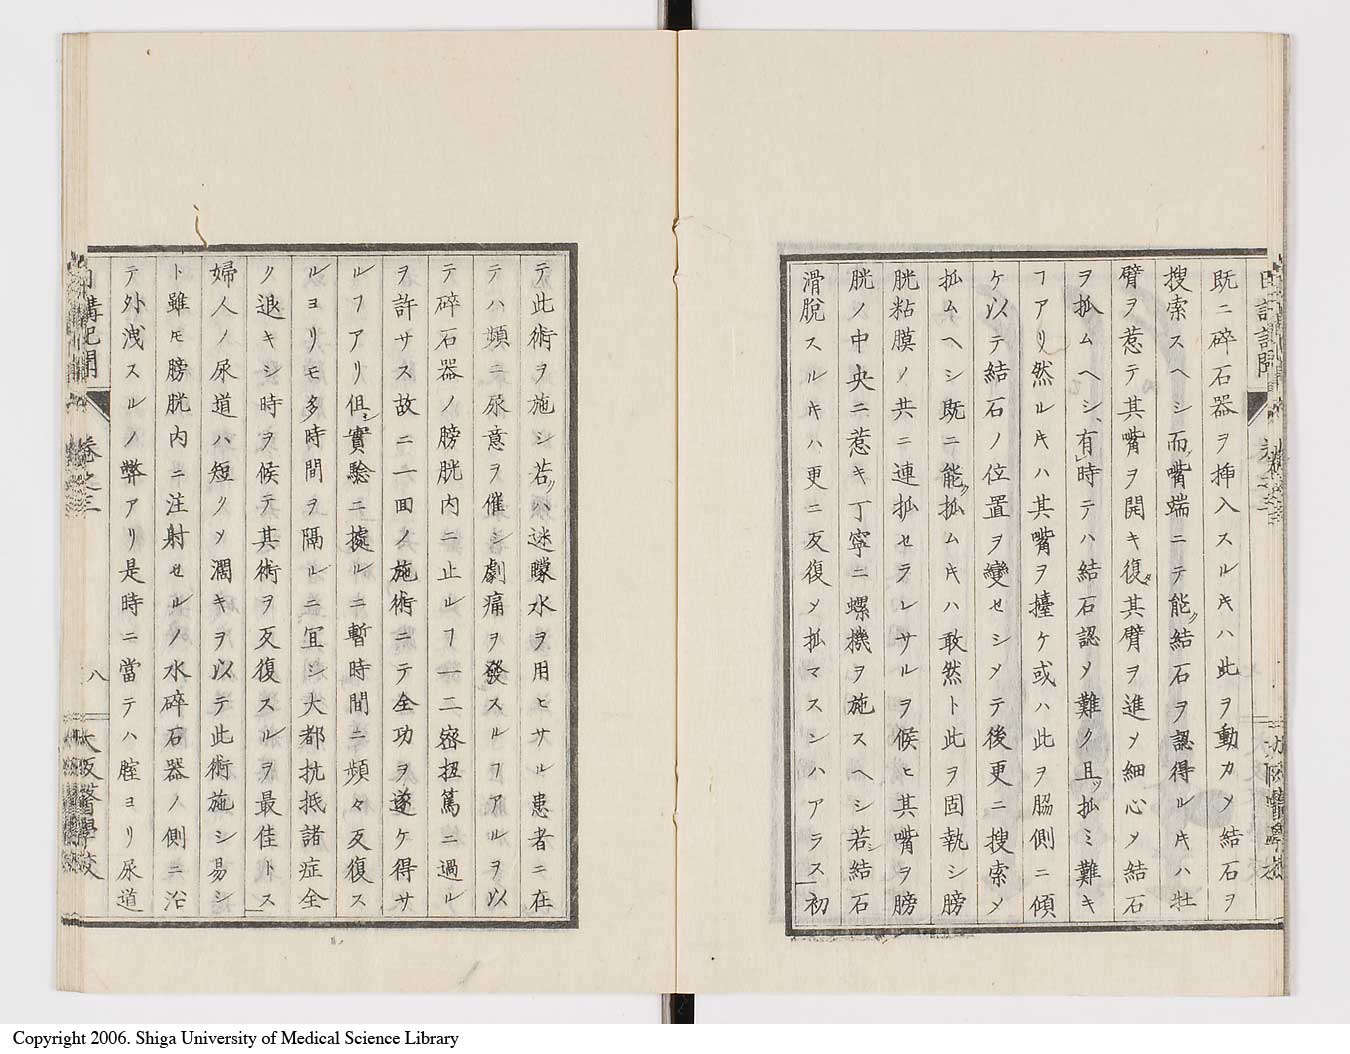 既ニ碎石器ヲ挿入スルキハ此ヲ動カメ結石ヲ
搜索スヘシ而ノ嘴端ニテ能ク結石ヲ認得ルキハ牡
臂ヲ惹テ其嘴ヲ開キ復タ其臂ヲ進メ細心メ結石
ヲ拡ムヘシ、有時テハ結石認メ難ク且ツ拡ミ難キ
ヿアリ然ルキハ其嘴ヲ擡ケ或ハ此ヲ脇側ニ傾
ケ以テ結石ノ位置ヲ變セシメテ後更ニ搜索メ
拡ムヘシ既ニ能ク拡ムキハ敢然ト此ヲ固執シ膀
胱粘膜ノ共ニ連拡セラレサルヲ候ヒ其嘴ヲ膀
胱ノ中央ニ惹キ丁寧ニ螺機ヲ施スヘシ若シ結石
滑脱スルキハ更ニ反復メ拡マスンハアラス初
テ此術ヲ施シ若クハ迷矇水ヲ用ヒサル患者ニ在
テハ頻ニ尿意ヲ催シ劇痛ヲ發スルヿアルヲ以
テ碎石器ノ膀胱内ニ止ルヿ一二密扭篤ニ過ル
ヲ許サス故ニ一回ノ施術ニテ全功ヲ遂ケ得サ
ルヿアリ但シ實驗ニ據ルニ暫時間ニ頻々反復ス
ルヨリモ多時間ヲ隔ルニ冝シ大都抗抵諸症全
ク退キシ時ヲ候テ其術ヲ反復スルヲ最佳トス
婦人ノ尿道ハ短クメ濶キヲ以テ此術施シ易シ
ト雖モ膀胱内ニ注射セルノ水碎石器ノ側ニ沿
テ外洩スルノ弊アリ是時ニ當テハ腟ヨリ尿道
日講記聞
卷之三
八
大阪醫學校
Copyright 2006. Shiga University of Medical Science Library